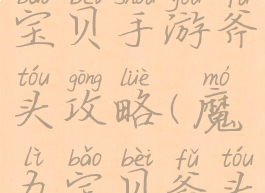 bǎo bèi shǒu yóu fǔ
宝贝手游斧
tóu gōng lüè mó
头攻略(魔
lì bǎo bèi fǔ tóu
力宝贝斧头